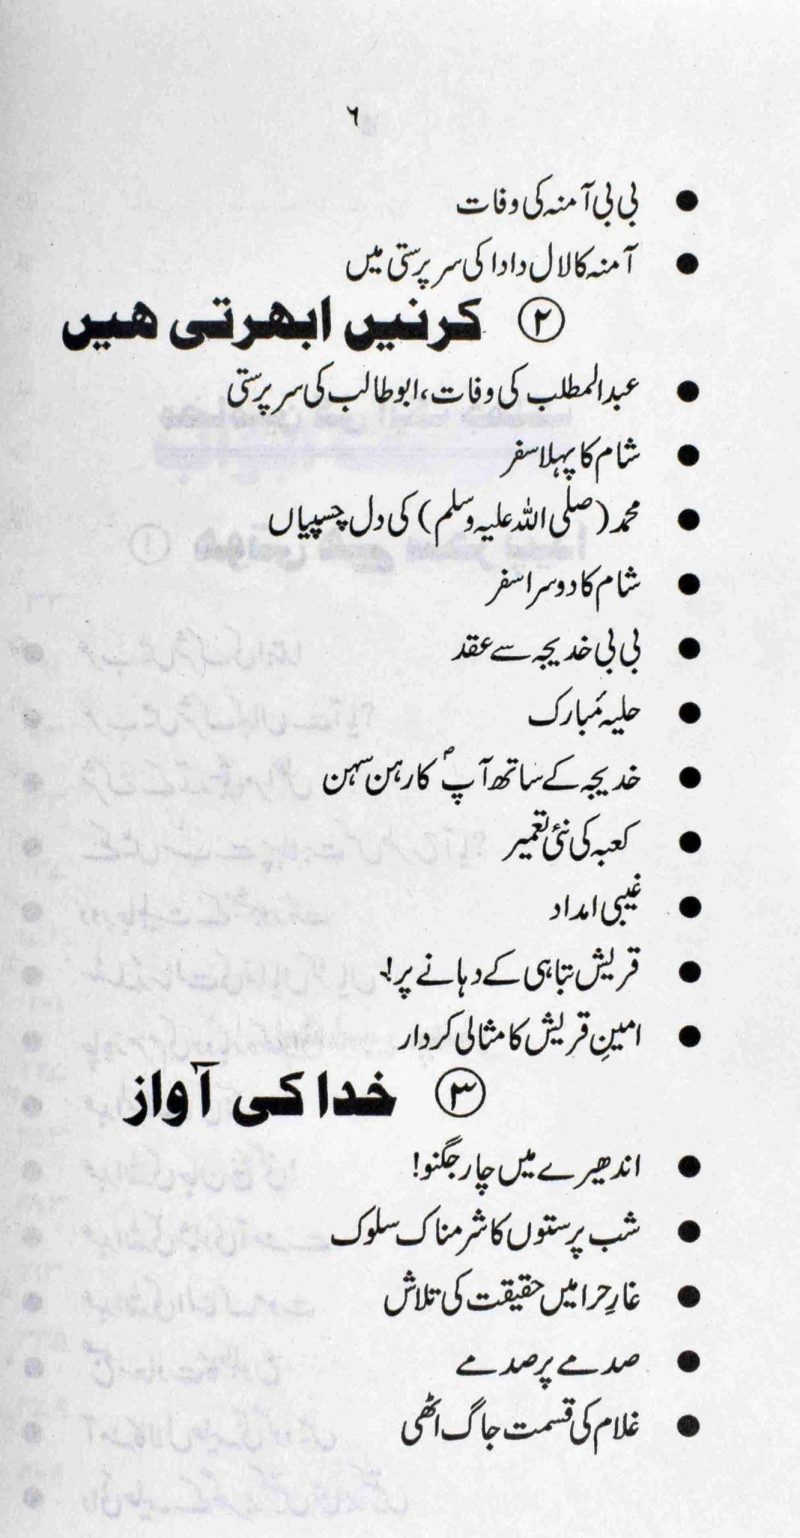 ۶
● بی بی آمنہ کی وفات
● آمنہ کا لال دادا کی سرپرستی میں
② کرنیں ابھرتی ھیں
● عبدالمطلب کی وفات، ابوطالب کی سرپرستی
● شام کا پہلا سفر
● محمد (صلی اللہ علیہ وسلم) کی دل چسپیاں
● شام کا دوسرا سفر
● بی بی خدیجہ سے عقد
● حلیہ مُبارک
● خدیجہ کے ساتھ آپؐ کا رہن سہن
● کعبہ کی نئی تعمیر
● غیبی امداد
● قریش تباہی کے دہانے پر!
● امینِ قریش کا مثالی کردار
③ خدا کی آواز
● اندھیرے میں چار جگنو!
● شب پرستوں کا شرمناک سلوک
● غارِ حرا میں حقیقت کی تلاش
● صدمے پر صدمے
● غلام کی قسمت جاگ اٹھی